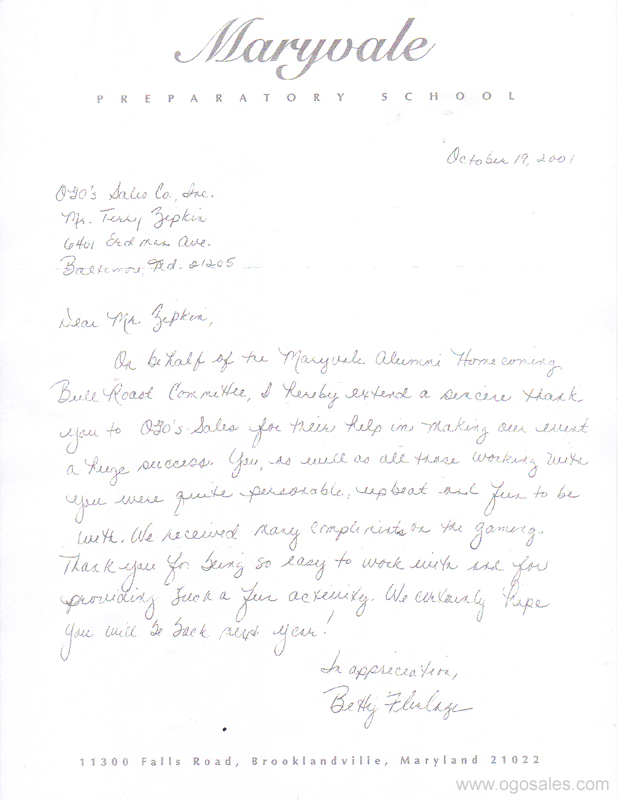 Maryvale
PREPARATORY SCHOOL
October 19, 2001
OGO's Sales Co., Inc.
Mr. Terry Zipkin
6401 Erdman Ave.
Baltimore, Md. 21205
Dear Mr. Zipkin,
On behalf of the Maryvale Alumni Homecoming
Bull Roast Committee, I hereby extend a sincere thank
you to OGO's Sales for their help in making our event
a huge success. You, as well as all those working with
you were quite personable, upbeat and fun to be
with. We received many compliments on the gaming.
Thank you for being so easy to work with and for
providing such a fun activity. We certainly hope
you will be back next year!
In appreciation,
Betty
11300 Falls Road, Brooklandville, Maryland 21022
www.ogosales.com